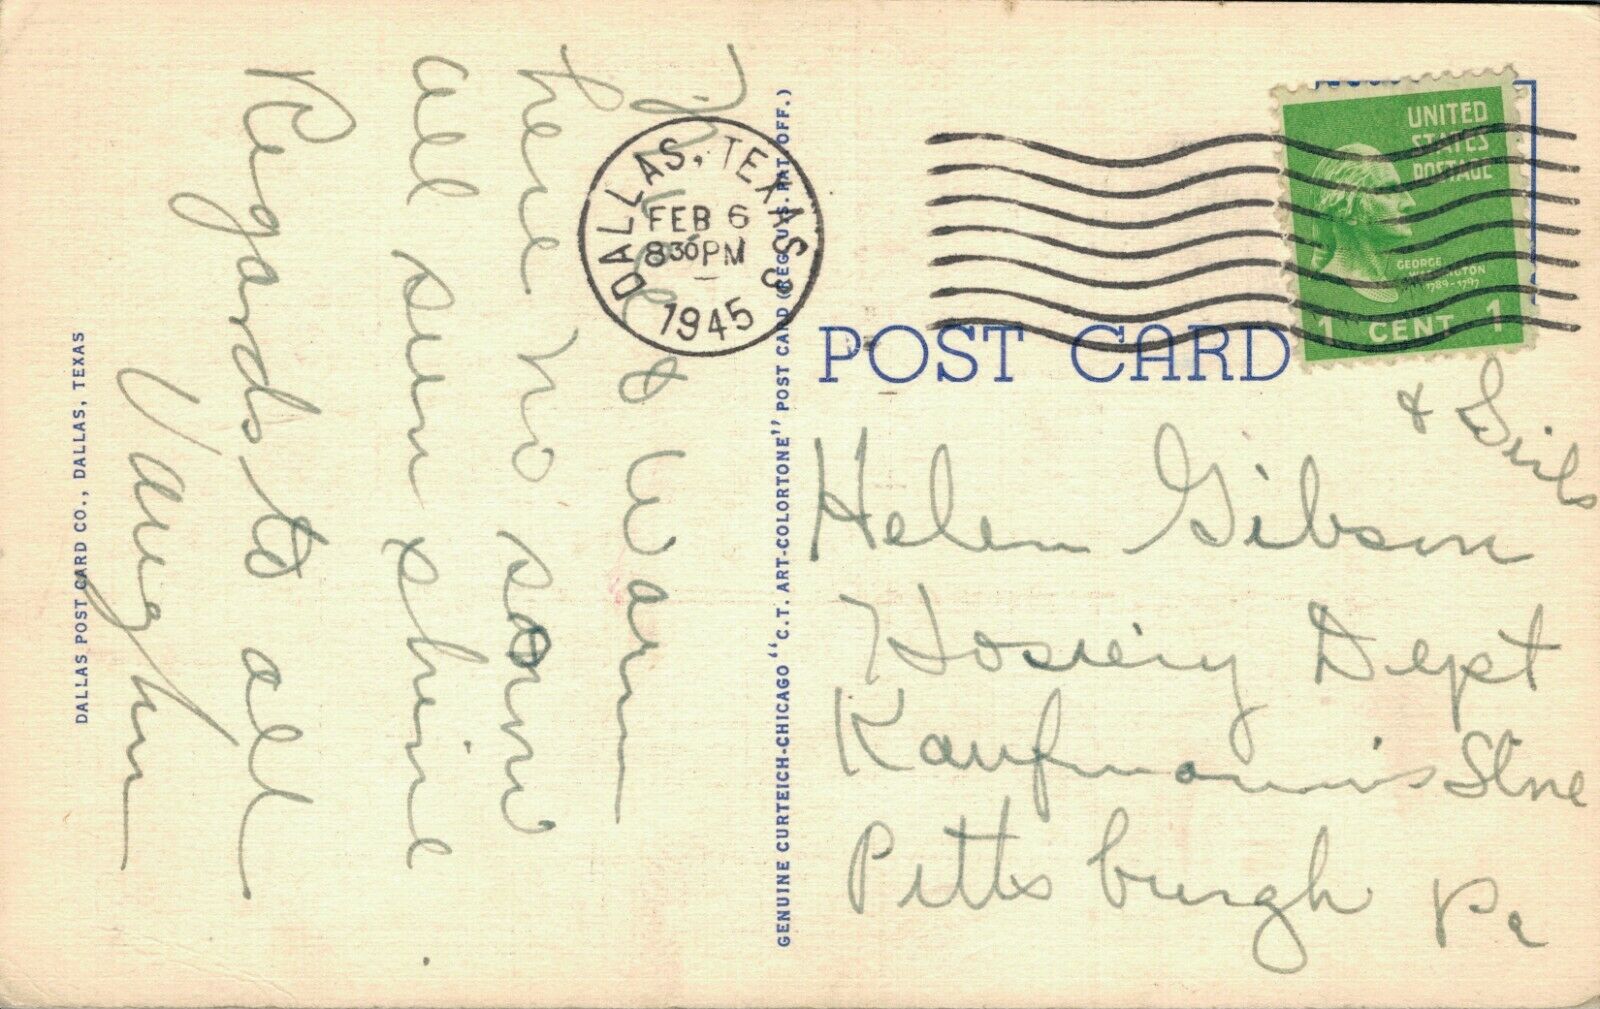 Nice & warm
here no snow
all sun shine
Regards to all
Vaughn
DALLAS, TEXAS
FEB 6
830PM
1945
3
UNITED
STATES
POSTAGE
GEORGE
WASHINGTON
1789-1797
1 CENT 1
POST CARD
& Girls
Helen Gibson
Hosiery Dept
Kaufmann's Store
Pittsburgh Pa
GENUINE CURTEICH-CHICAGO "C.T. ART-COLORTONE" POST CARD (REG. U.S. PAT. OFF.)
DALLAS POST CARD CO., DALLAS, TEXAS